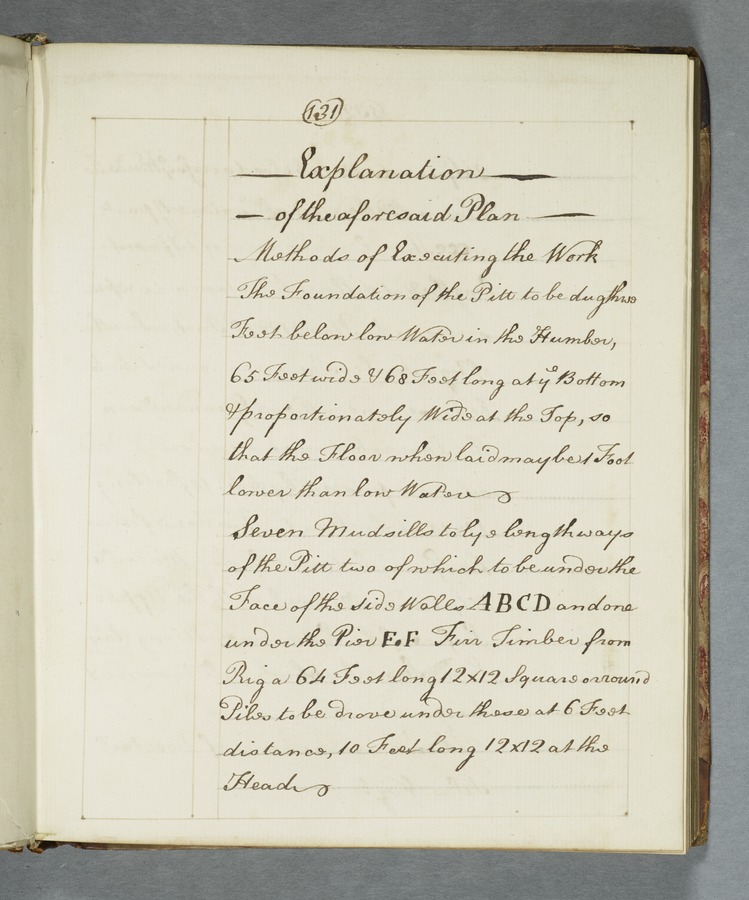 (131)
Explanation
of the aforesaid Plan
Methods of Executing the Work
The Foundation of the Pitt to be dug three
Feet below low Water in the Humber,
65 Feet wide & 68 Feet long at ye Bottom
& proportionately Wide at the Top, so
that the Floor when laid may be 1 Foot
lower than low Water
Seven Mudsills to lye lengthways
of the Pitt two of which to be under the
Face of the side Walls ABCD and one
under the Pier E.F Firr Timber from
Riga 64 Feet long 12x12 Square or round
Piles to be drove under these at 6 Feet
distance, 10 Feet long 12x12 at the
Head